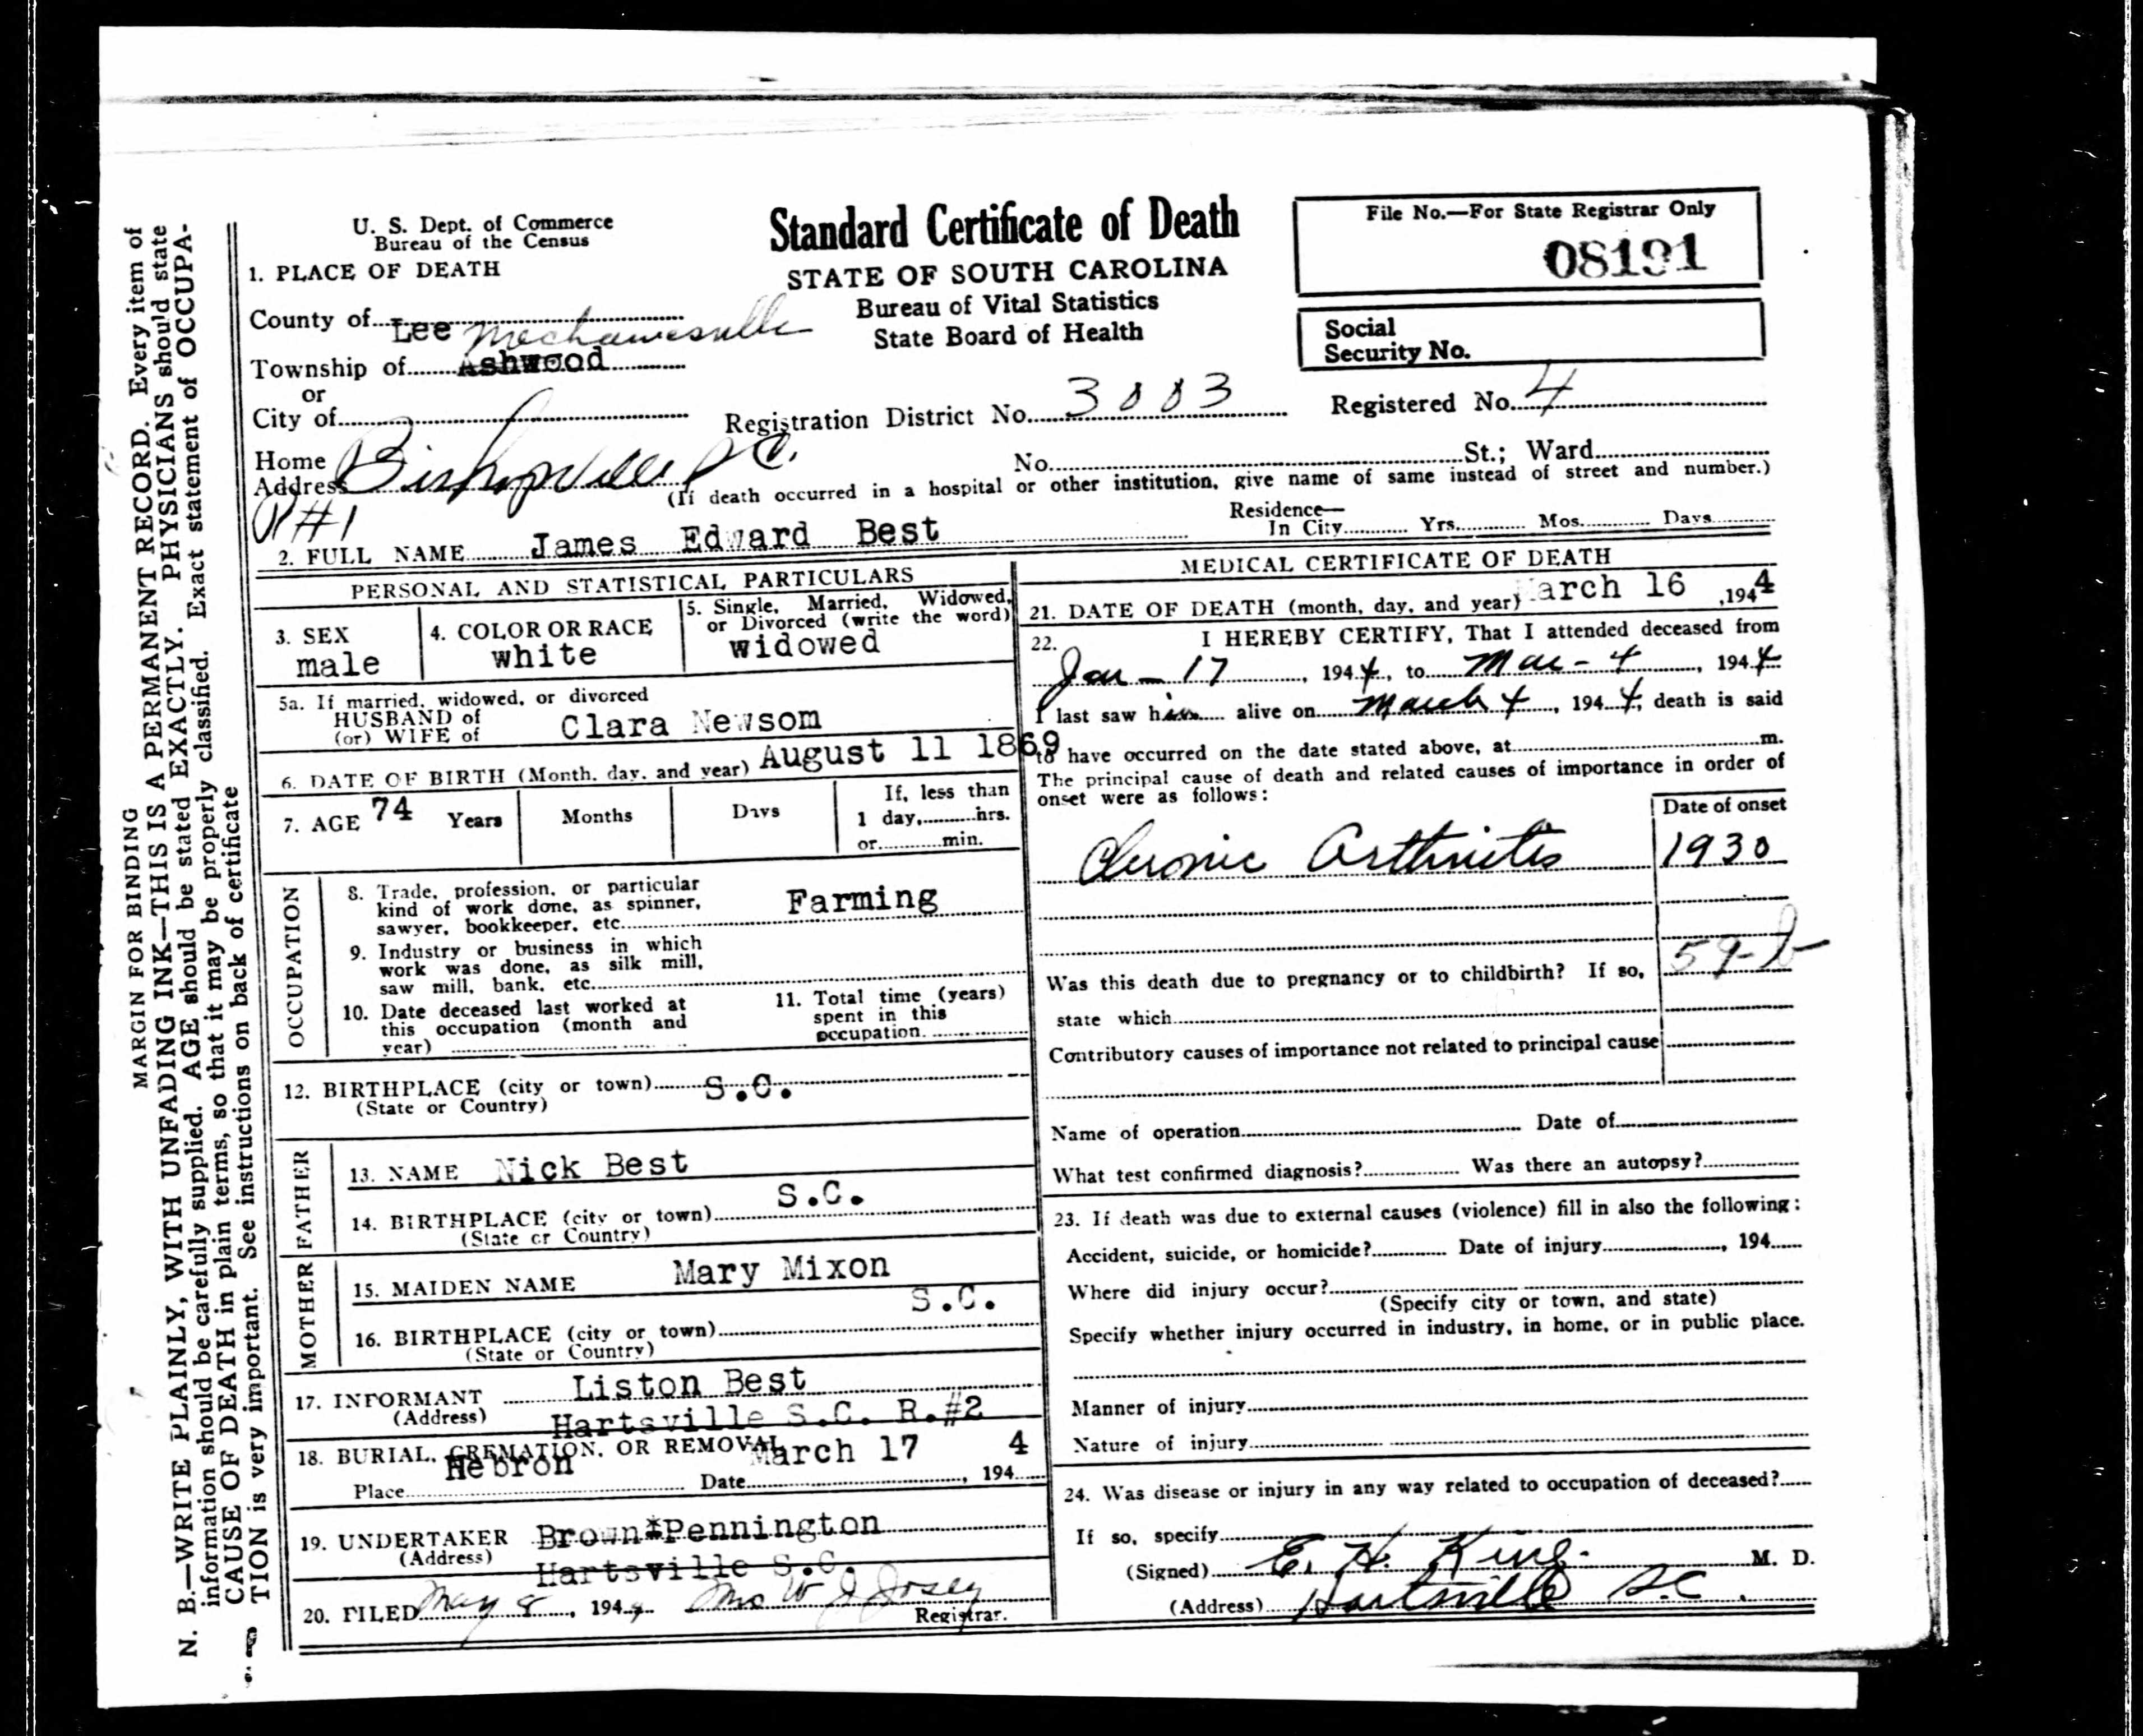 U. S. Dept. of Commerce
Bureau of the Census
Standard Certificate of Death
STATE OF SOUTH CAROLINA
Bureau of Vital Statistics
State Board of Health
File No.—For State Registrar Only
08191
Social
Security No.
1. PLACE OF DEATH
County of Lee
Mechanicsville
Township of Ashwood
or
City of
Registration District No. 3003
Registered No. 4
Home
Address Bishopville S C.
R #1
No. St.; Ward
(If death occurred in a hospital or other institution, give name of same instead of street and number.)
Residence—
In City Yrs. Mos. Days
2. FULL NAME James Edward Best
PERSONAL AND STATISTICAL PARTICULARS
3. SEX
male
4. COLOR OR RACE
white
5. Single, Married, Widowed,
or Divorced (write the word)
widowed
5a. If married, widowed, or divorced
HUSBAND of
(or) WIFE of
Clara Newsom
6. DATE OF BIRTH (Month, day, and year) August 11 1869
7. AGE 74 Years Months Days
If, less than
1 day, hrs.
or min.
OCCUPATION
8. Trade, profession, or particular
kind of work done, as spinner,
sawyer, bookkeeper, etc. Farming
9. Industry or business in which
work was done, as silk mill,
saw mill, bank, etc.
10. Date deceased last worked at
this occupation (month and
year)
11. Total time (years)
spent in this
occupation.
12. BIRTHPLACE (city or town) S.C.
(State or Country)
FATHER
13. NAME Nick Best
14. BIRTHPLACE (city or town) S.C.
(State or Country)
MOTHER
15. MAIDEN NAME Mary Mixon
16. BIRTHPLACE (city or town) S.C.
(State or Country)
17. INFORMANT Liston Best
(Address) Hartsville S.C. R.#2
18. BURIAL, CREMATION, OR REMOVAL
Place Hebron Date March 17, 194 4
19. UNDERTAKER Brown*Pennington
(Address) Hartsville S.C.
20. FILED May 8, 1944 Mrs W J Josey
Registrar.
MEDICAL CERTIFICATE OF DEATH
21. DATE OF DEATH (month, day, and year) March 16, 1944
22. I HEREBY CERTIFY, That I attended deceased from
Jan - 17, 1944, to Mar - 4, 1944
I last saw him alive on March 4, 1944, death is said
to have occurred on the date stated above, at m.
The principal cause of death and related causes of importance in order of
onset were as follows:
Date of onset
Chronic Arthritis 1930
59-b
Was this death due to pregnancy or to childbirth? If so,
state which
Contributory causes of importance not related to principal cause
Name of operation Date of
What test confirmed diagnosis? Was there an autopsy?
23. If death was due to external causes (violence) fill in also the following:
Accident, suicide, or homicide? Date of injury, 194
Where did injury occur?
(Specify city or town, and state)
Specify whether injury occurred in industry, in home, or in public place.
Manner of injury
Nature of injury
24. Was disease or injury in any way related to occupation of deceased?
If so, specify
(Signed) E. H. King M. D.
(Address) Hartsville S.C.
MARGIN FOR BINDING
N. B.—WRITE PLAINLY, WITH UNFADING INK—THIS IS A PERMANENT RECORD. Every item of
information should be carefully supplied. AGE should be stated EXACTLY. PHYSICIANS should state
CAUSE OF DEATH in plain terms, so that it may be properly classified. Exact statement of OCCUPA-
TION is very important. See instructions on back of certificate